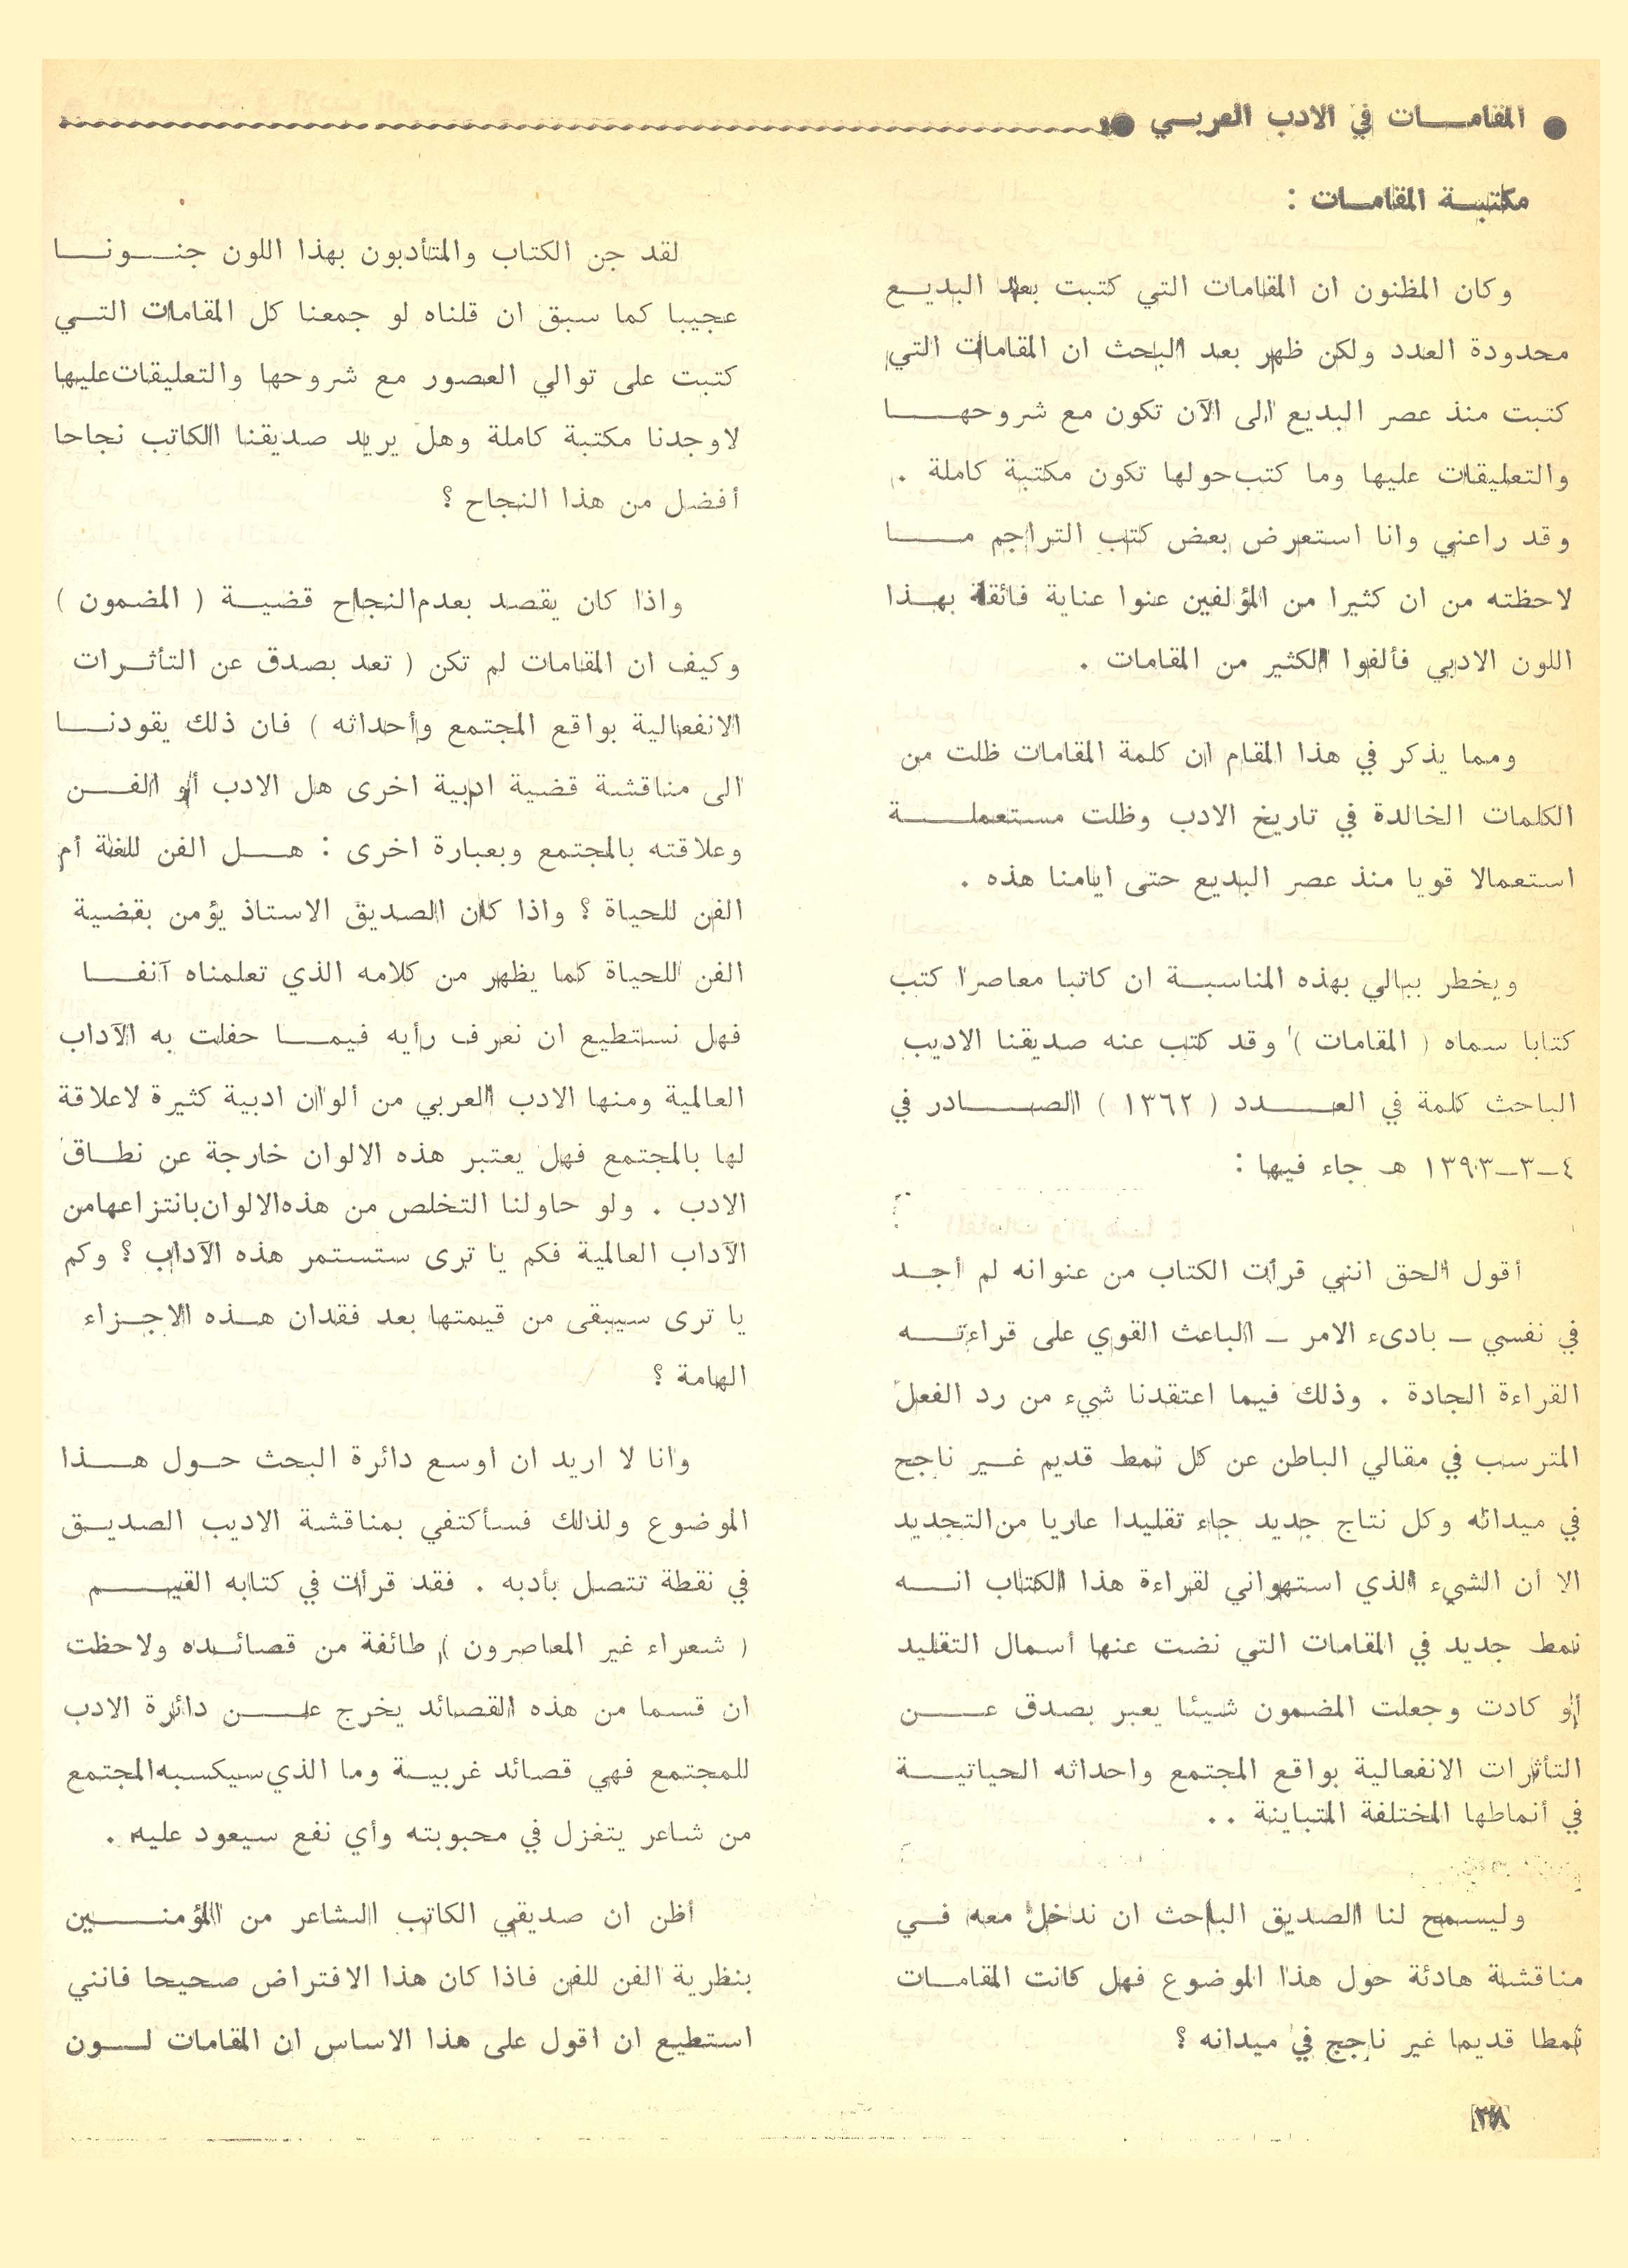 ● المقامات في الادب العربي ●
مكتبة المقامات :
وكان المظنون ان المقامات التي كتبت بعد البديع
محدودة العدد ولكن ظهر بعد البحث ان المقامات التي
كتبت منذ عصر البديع الى الآن تكون مع شروحها
والتعليقات عليها وما كتب حولها تكون مكتبة كاملة .
وقد راعني وانا استعرض بعض كتب التراجم ما
لاحظته من ان كثيرا من المؤلفين عنوا عناية فائقة بهذا
اللون الادبي فألفوا الكثير من المقامات .
ومما يذكر في هذا المقام ان كلمة المقامات ظلت من
الكلمات الخالدة في تاريخ الادب وظلت مستعملة
استعمالا قويا منذ عصر البديع حتى ايامنا هذه .
ويخطر ببالي بهذه المناسبة ان كاتبا معاصرا كتب
كتابا سماه ( المقامات ) وقد كتب عنه صديقنا الاديب
الباحث كلمة في العدد ( ١٣٦٢ ) الصادر في
٤ــ٣ــ١٣٩٣ هـ جاء فيها :
أقول الحق انني قرأت الكتاب من عنوانه لم أجد
في نفسي ــ بادىء الامر ــ الباعث القوي على قراءته
القراءة الجادة . وذلك فيما اعتقدنا شيء من رد الفعل
المترسب في مقالي الباطن عن كل نمط قديم غير ناجح
في ميدانه وكل نتاج جديد جاء تقليدا عاريا من التجديد
الا أن الشيء الذي استهواني لقراءة هذا الكتاب انه
نمط جديد في المقامات التي نضت عنها أسمال التقليد
أو كادت وجعلت المضمون شيئا يعبر بصدق عن
التأثرات الانفعالية بواقع المجتمع واحداثه الحياتية
في أنماطها المختلفة المتباينة ..
وليسمح لنا الصديق الباحث ان ندخل معه في
مناقشة هادئة حول هذا الموضوع فهل كانت المقامات
نمطا قديما غير ناجح في ميدانه ؟
لقد جن الكتاب والمتأدبون بهذا اللون جنونا
عجيبا كما سبق ان قلناه لو جمعنا كل المقامات التي
كتبت على توالي العصور مع شروحها والتعليقات عليها
لاوجدنا مكتبة كاملة وهل يريد صديقنا الكاتب نجاحا
أفضل من هذا النجاح ؟
واذا كان يقصد بعدم النجاح قضية ( المضمون )
وكيف ان المقامات لم تكن ( تعد بصدق عن التأثرات
الانفعالية بواقع المجتمع وأحداثه ) فان ذلك يقودنا
الى مناقشة قضية ادبية اخرى هل الادب أو الفن
وعلاقته بالمجتمع وبعبارة اخرى : هل الفن للغة أم
الفن للحياة ؟ واذا كان الصديق الاستاذ يؤمن بقضية
الفن للحياة كما يظهر من كلامه الذي تعلمناه آنفا
فهل نستطيع ان نعرف رأيه فيما حفلت به الآداب
العالمية ومنها الادب العربي من ألوان ادبية كثيرة لاعلاقة
لها بالمجتمع فهل يعتبر هذه الالوان خارجة عن نطاق
الادب . ولو حاولنا التخلص من هذه الالوان بانتزاعها من
الآداب العالمية فكم يا ترى ستستمر هذه الآداب ؟ وكم
يا ترى سيبقى من قيمتها بعد فقدان هذه الاجزاء
الهامة ؟
وانا لا اريد ان اوسع دائرة البحث حول هذا
الموضوع ولذلك فسأكتفي بمناقشة الاديب الصديق
في نقطة تتصل بأدبه . فقد قرأت في كتابه القيم
( شعراء غير المعاصرون ) طائفة من قصائده ولاحظت
ان قسما من هذه القصائد يخرج عن دائرة الادب
للمجتمع فهي قصائد غربية وما الذي سيكسبه المجتمع
من شاعر يتغزل في محبوبته وأي نفع سيعود عليه .
أظن ان صديقي الكاتب الشاعر من المؤمنين
بنظرية الفن للفن فاذا كان هذا الافتراض صحيحا فانني
استطيع ان اقول على هذا الاساس ان المقامات لون